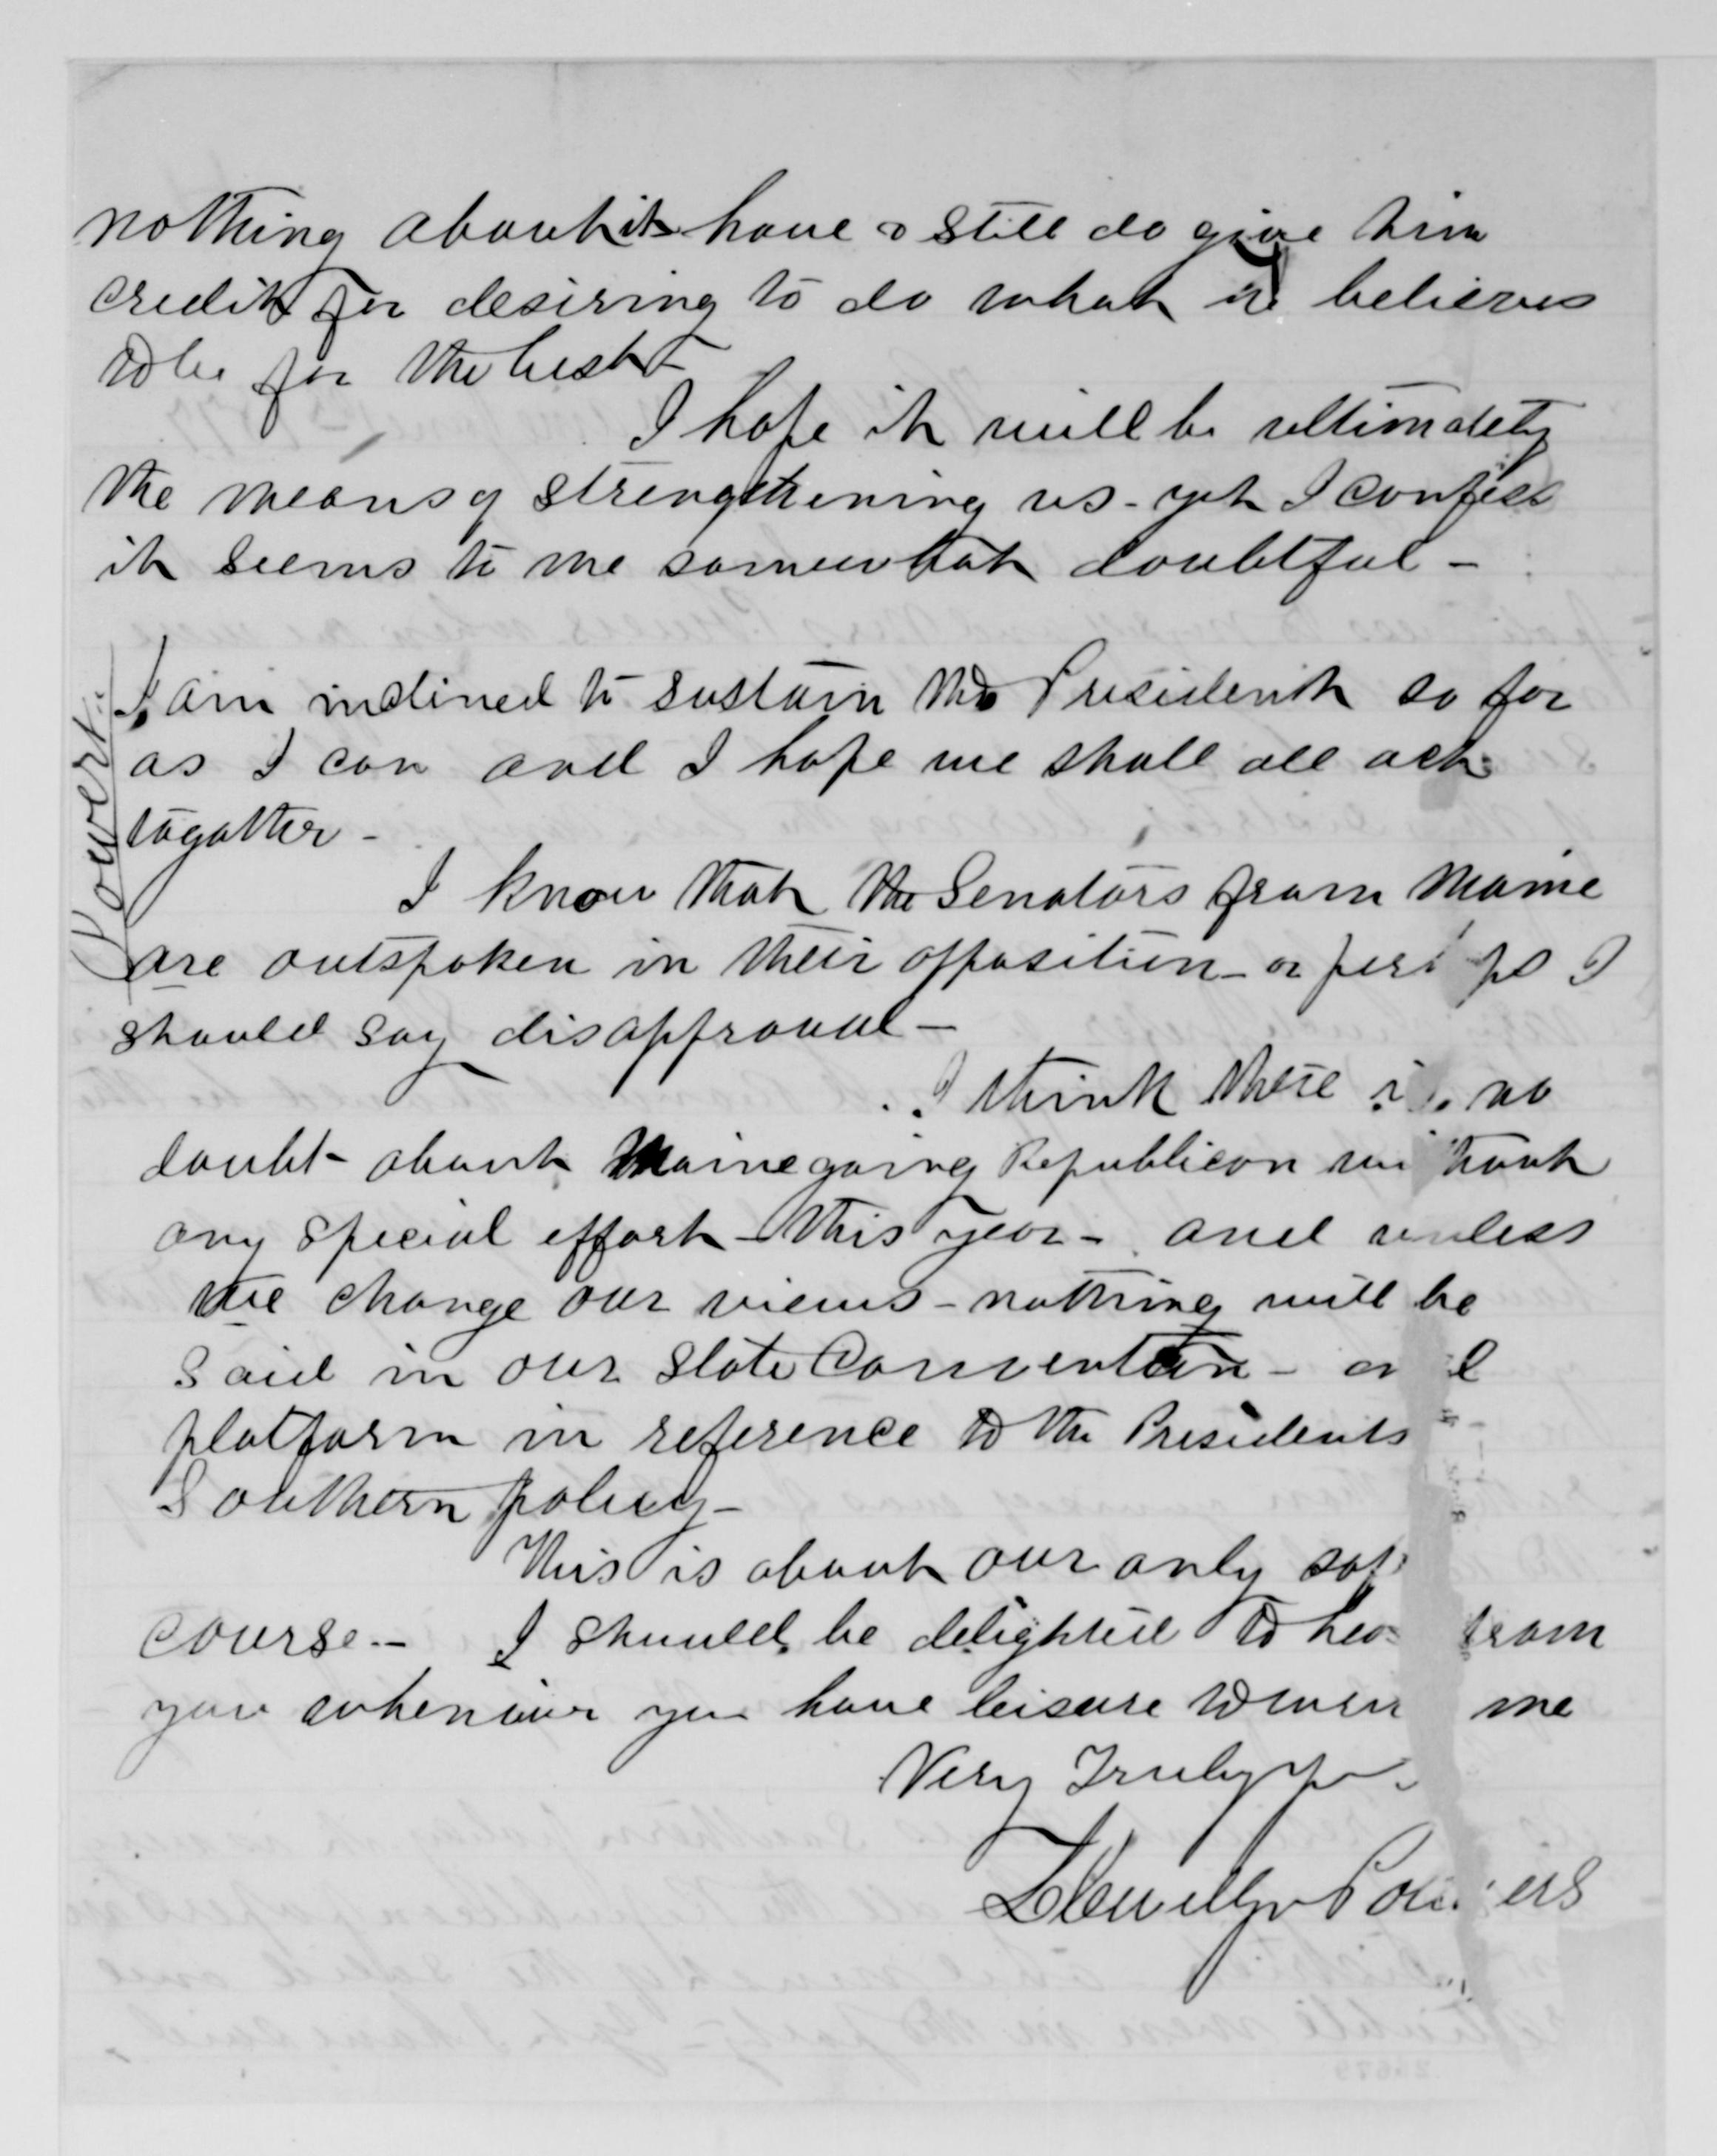 nothing about it have & still do give him
credit for desiring to do what he believes
to be for the best
I hope it will be ultimately
the means of strengthening us - yet I confess
it seems to me somewhat doubtful -
I am inclined to sustain the President so far
as I can and I hope we shall all act
togather -
I know that the Senators from Maine
are outspoken in their opposition - or perhaps I
should say disapproval -
I think there is no
doubt - about Maine going Republican without
any special effort - this year - and unless
we change our views - nothing will be
said in our State Convention - and
platform in reference to the Presidents
Southern policy -
This is about our only safe
course - I should be delighted to hear from
you whenever you have leisure to write me
Very Truly yrs
Llewellyn Powers
Powers